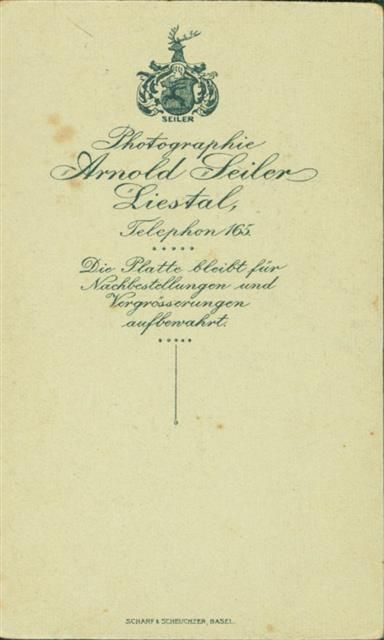 SEILER
Photographie
Arnold Seiler
Liestal,
Telephon 165.
Die Platte bleibt für
Nachbestellungen und
Vergrösserungen
aufbewahrt.
SCHARF & SCHEUCHZER, BASEL.